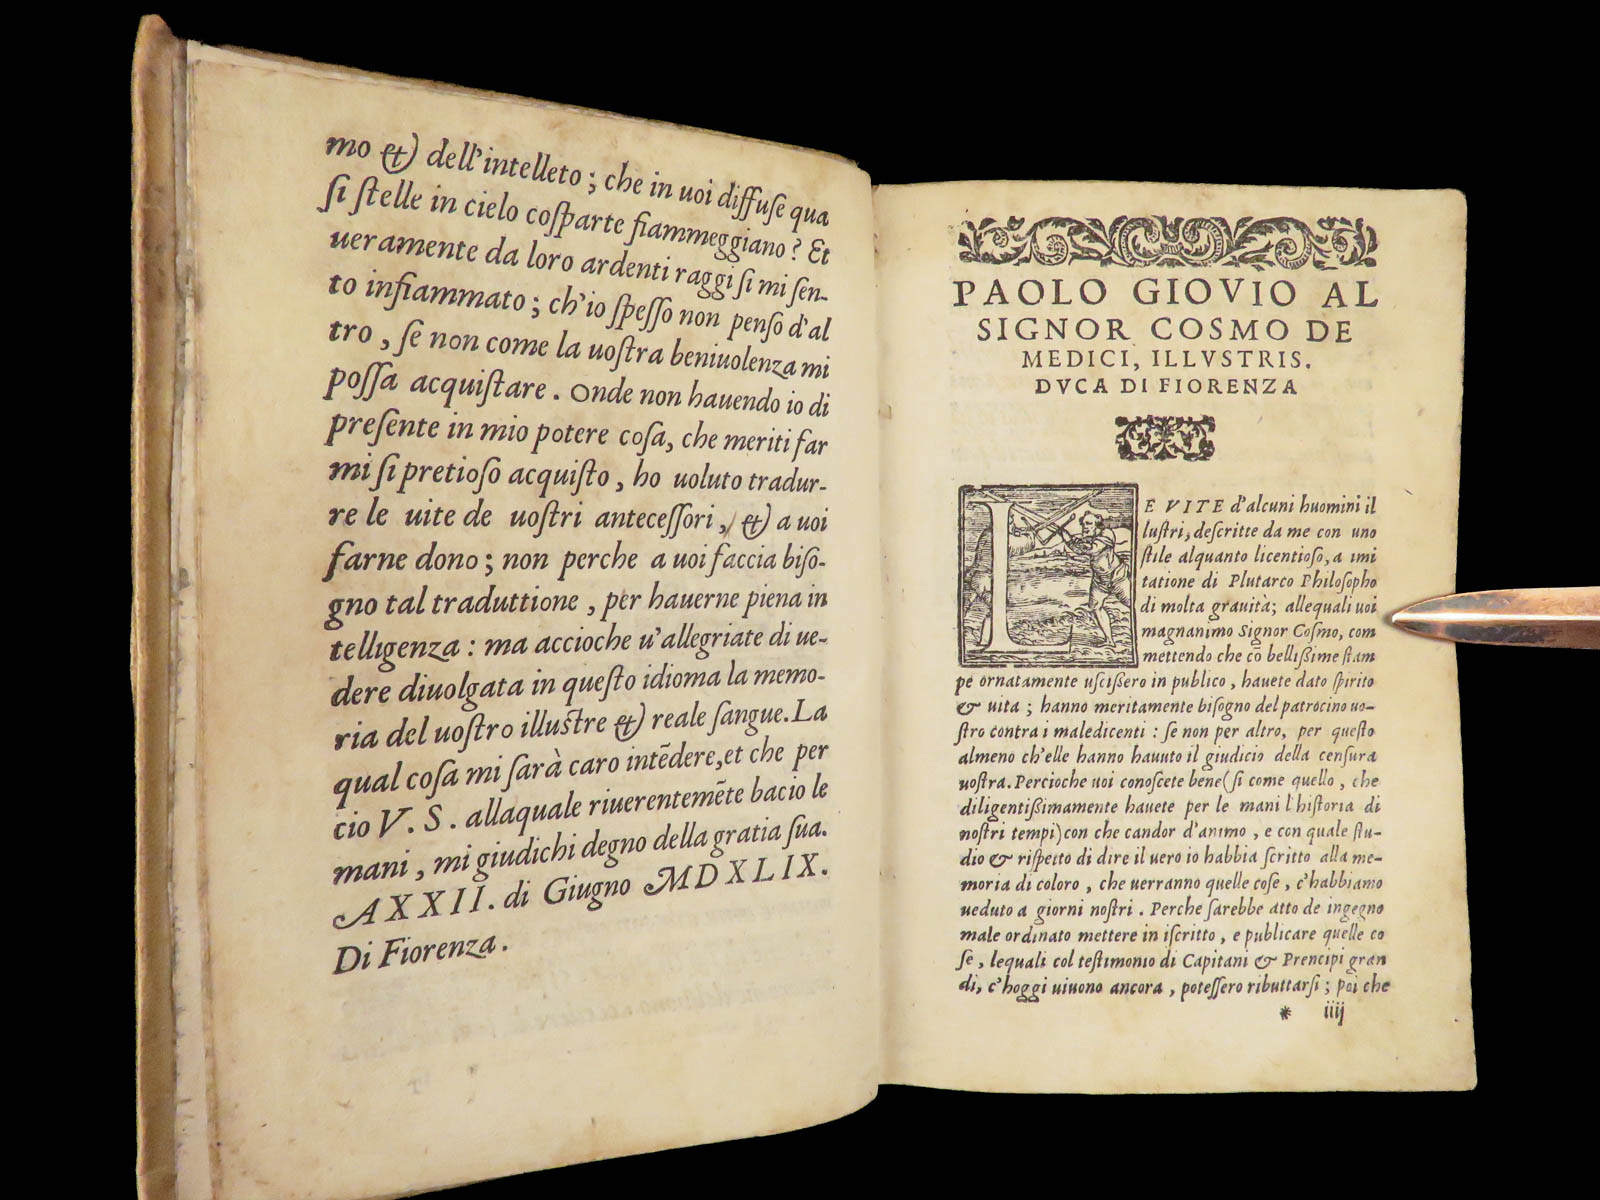 mo & dell'intelleto; che in uoi diffuse qua
ſi ſtelle in cielo coſparte fiammeggiano? Et
ueramente da loro ardenti raggi ſi mi ſen-
to infiammato; ch'io ſpeſſo non penſo d'al
tro, ſe non come la uoſtra beniuolenza mi
poſſa acquiſtare. Onde non hauendo io di
preſente in mio potere coſa, che meriti far
mi ſi pretioſo acquiſto, ho uoluto tradur-
re le uite de uoſtri anteceſſori, & a uoi
farne dono; non perche a uoi faccia biſo-
gno tal traduttione, per hauerne piena in
telligenza: ma accioche u'allegriate di ue-
dere diuolgata in queſto idioma la memo-
ria del uoſtro illuſtre & reale ſangue. La
qual coſa mi ſarà caro intẽdere, et che per
cio V. S. allaquale riuerentemẽte bacio le
mani, mi giudichi degno della gratia ſua.
A XXII. di Giugno MDXLIX.
Di Fiorenza.
PAOLO GIOVIO AL
SIGNOR COSMO DE
MEDICI, ILLVSTRIS.
DVCA DI FIORENZA
LE VITE d'alcuni huomini il
luſtri, deſcritte da me con uno
ſtile alquanto licentioſo, a imi
tatione di Plutarco Philoſopho
di molta grauità; allequali uoi
magnanimo Signor Coſmo, com
mettendo che cõ belliſſime ſtam
pe ornatamente uſciſſero in publico, hauete dato ſpirito
& uita; hanno meritamente biſogno del patrocino uo-
ſtro contra i maledicenti: ſe non per altro, per queſto
almeno ch'elle hanno hauuto il giudicio della cenſura
uoſtra. Percioche uoi conoſcete bene (ſi come quello, che
diligentiſſimamente hauete per le mani l'hiſtoria di
noſtri tempi) con che candor d'animo, e con quale ſtu-
dio & riſpetto di dire il uero io habbia ſcritto alla me-
moria di coloro, che uerranno quelle coſe, c'habbiamo
ueduto a giorni noſtri. Perche ſarebbe atto de ingegno
male ordinato mettere in iſcritto, e publicare quelle co
ſe, lequali col teſtimonio di Capitani & Prencipi gran
di, c'hoggi uiuono ancora, poteſſero ributtarſi; poi che
* iiij